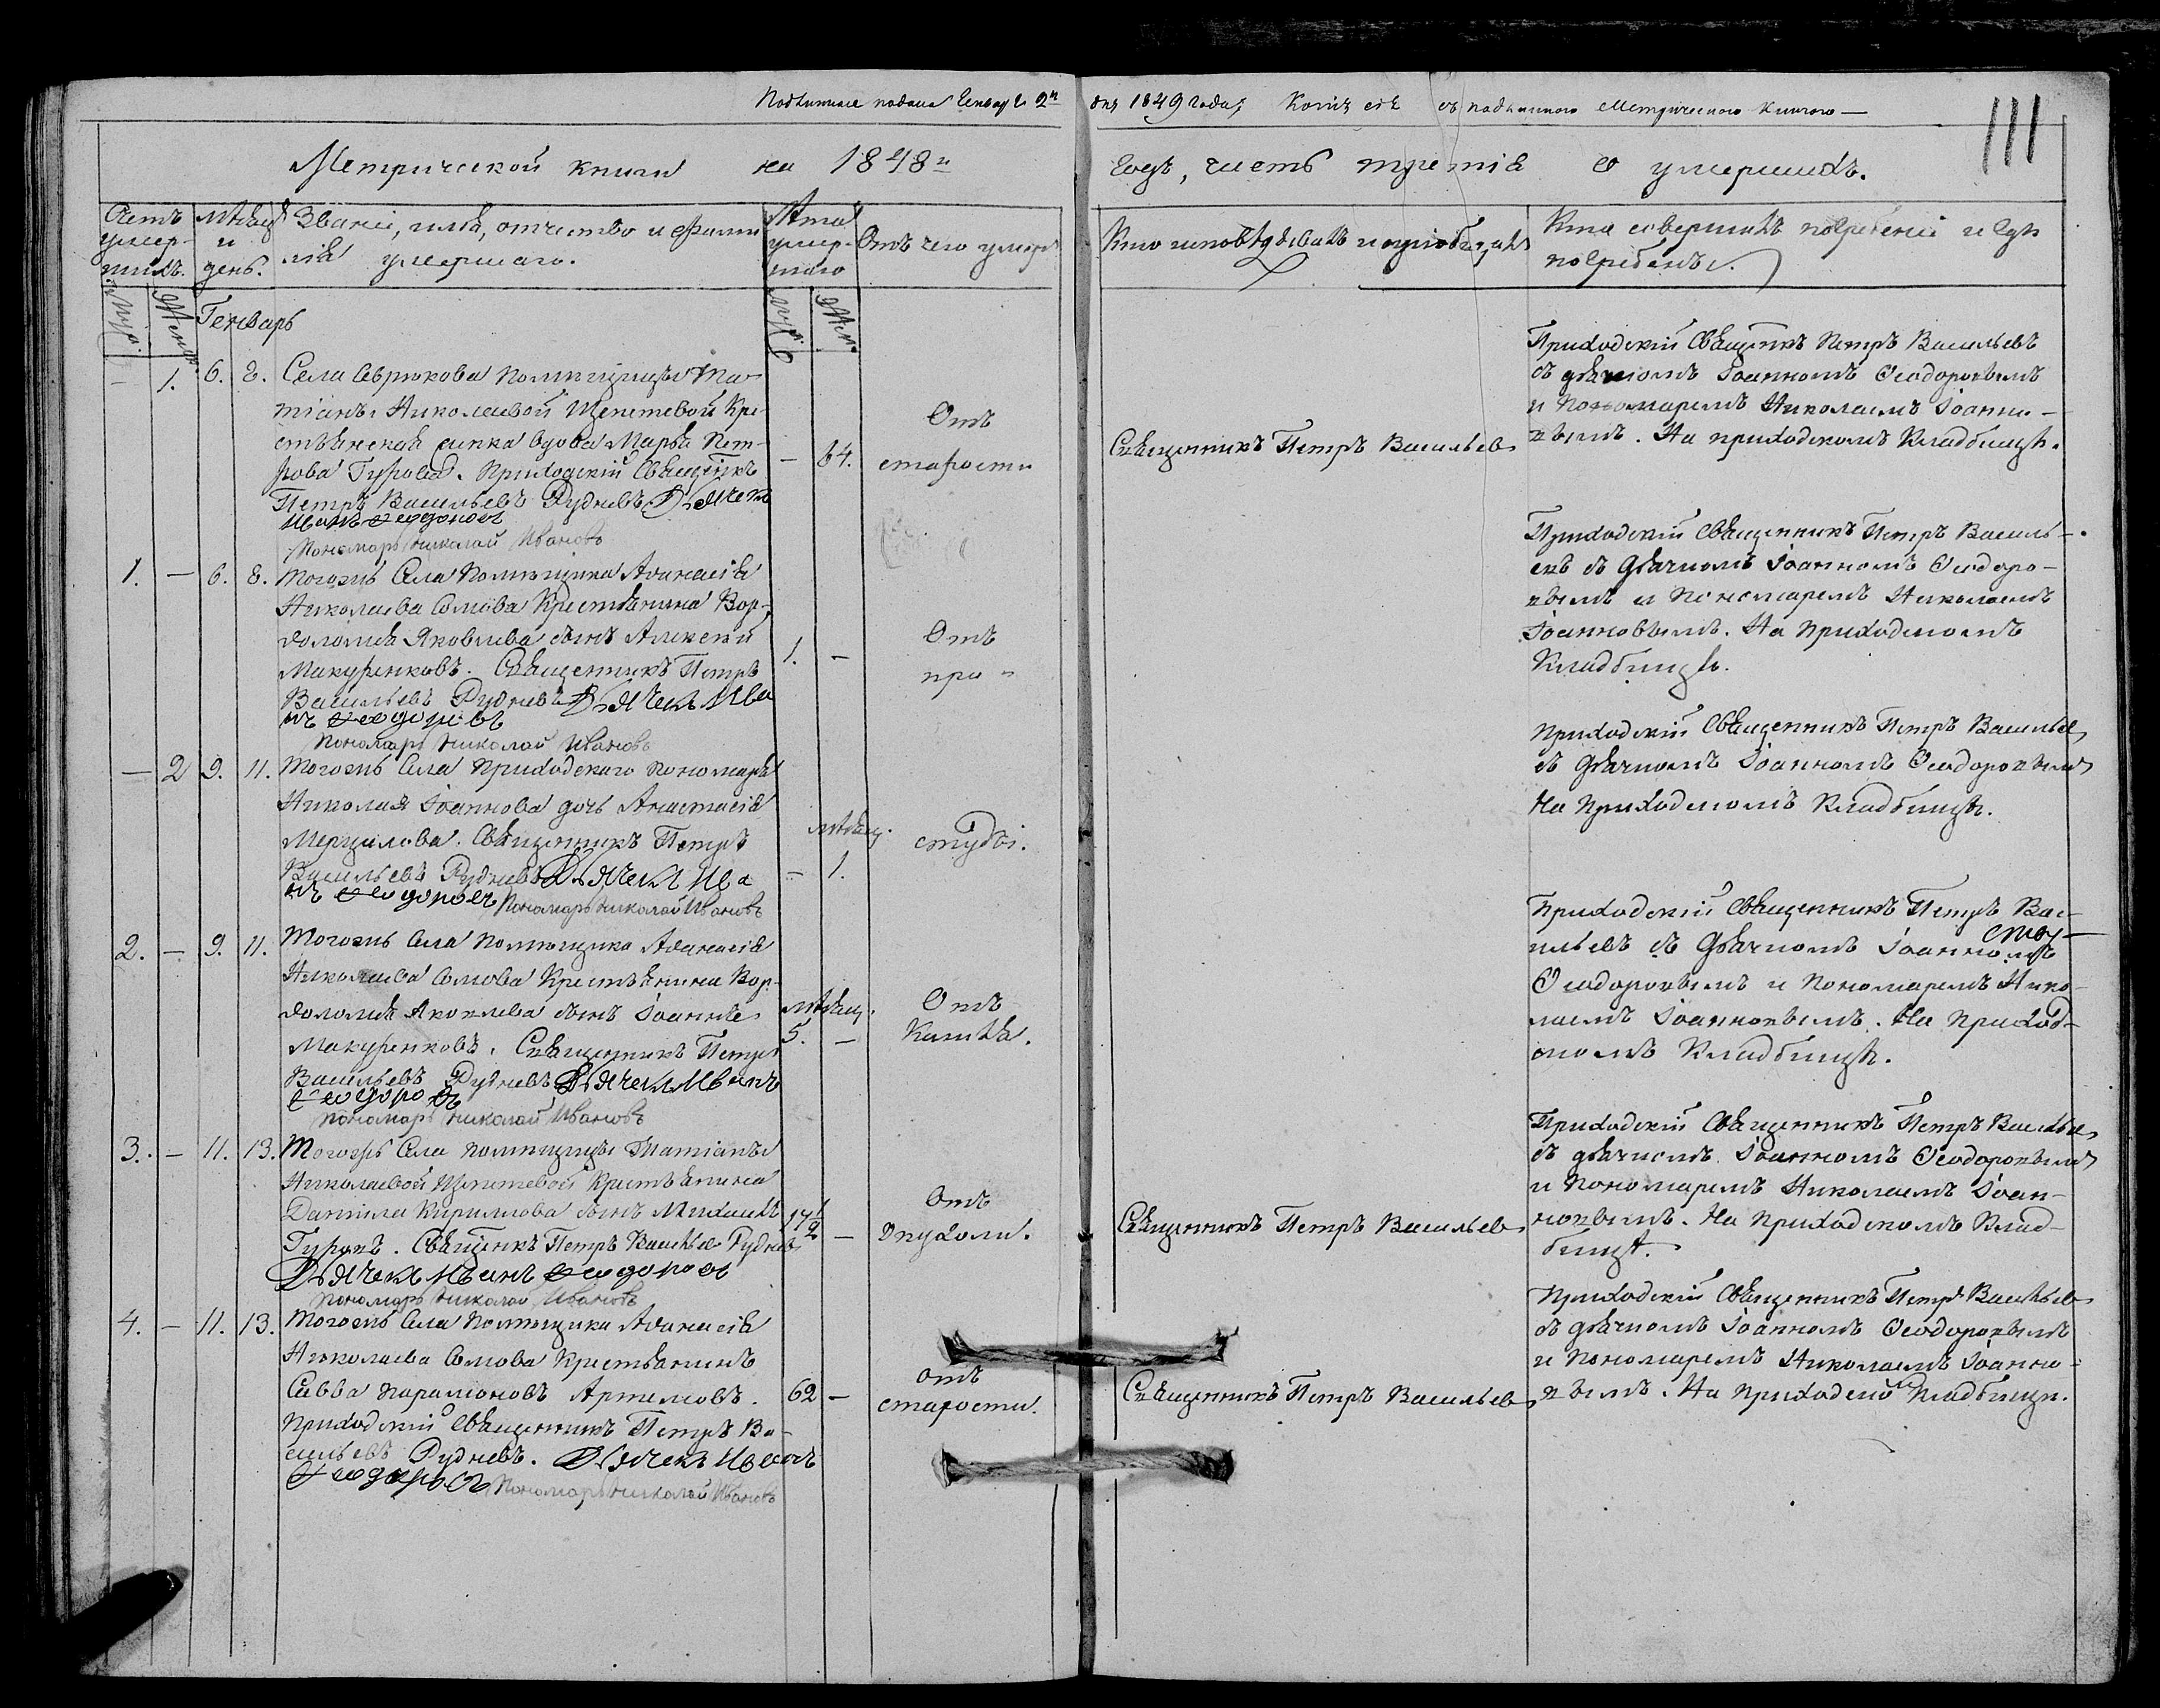 Подлинная подана Генваря 2го дня 1849 года,
Метрической книги на 1848й годъ, часть третія о умершихъ.
111
Счетъ умер-
шихъ.
Мѣсяцъ
и
день.
Званіе, имя, отчество и фами-
лія умершаго.
Лѣта
умер-
шаго
Отъ чего умеръ
Кто исповѣдывалъ и пріобщалъ
Кто совершалъ погребеніе и гдѣ
погребены.
Муж.
Жен.
Муж.
Жен.
Генварь
— 1. 6. 8. Села Севрюкова помѣщицы Та-
тіаны Николаевой Щепетевой Кре-
стьянская вдова Марья Пет-
рова Гурова. Приходскій Священникъ
Петръ Васильевъ Рудневъ Дьячекъ
Иванъ Ѳеодоровъ
Пономарь Николай Ивановъ
— 64.
Отъ
старости
Священникъ Петръ Васильевъ
Приходскій Священникъ Петръ Васильевъ
съ дьячкомъ Іоанномъ Ѳеодоровымъ
и Пономаремъ Николаемъ Іоанно-
вымъ. На приходскомъ Кладбищѣ.
1. — 6. 8. Тогожъ Села Помѣщика Аѳанасія
Николаева Сомова Крестьянина Вар-
ѳоломея Яковлева сынъ Алексей
Макуренковъ. Священникъ Петръ
Васильевъ Рудневъ Дьячекъ Ива
нъ Ѳеодоровъ
Пономарь Николай Ивановъ
1. —
Отъ
Приходскій Священникъ Петръ Василь-
евъ съ Дьячкомъ Іоанномъ Ѳеодоро-
вымъ и Пономаремъ Николаемъ
Іоанновымъ. На Приходскомъ
Кладбищѣ.
— 2 9. 11. Тогожъ Села Приходскаго пономаря
Николая Іоаннова дочь Анастасія
Мерцалова. Священникъ Петръ
Васильевъ Рудневъ Дьячекъ Ива
нъ Ѳеодоровъ Пономарь Николай Ивановъ
мѣсяц.
— 1.
Приходскій Священникъ Петръ Васильевъ
съ Дьячкомъ Іоанномъ Ѳеодоровымъ
На Приходскомъ Кладбищѣ.
2. — 9. 11. Тогожъ Села Помѣщика Аѳанасія
Николаева Сомова Крестьянина Вар-
ѳоломея Яковлева сынъ Іоаннъ
Макуренковъ. Священникъ Петръ
Васильевъ Рудневъ Дьячекъ Иванъ
Ѳеодоровъ
Пономарь Николай Ивановъ
мѣсяц.
5. —
Отъ
Кашля.
Приходскій Священникъ Петръ Вас-
ильевъ съ Дьячкомъ Іоанномъ
Ѳеодоровымъ и Пономаремъ Нико-
лаемъ Іоанновымъ. На Приход-
скомъ Кладбищѣ.
3. — 11. 13. Тогожъ Села помѣщицы Татіаны
Николаевой Щепетевой Крестьянина
Даніила Кириллова сынъ Михаилъ
Гуровъ. Священникъ Петръ Васильевъ Рудневъ
Дьячекъ Иванъ Ѳеодоровъ
Пономарь Николай Ивановъ
17½ —
Отъ
опухоли.
Священникъ Петръ Васильевъ
Приходскій Священникъ Петръ Васильевъ
съ дьячкомъ Іоанномъ Ѳеодоровымъ
и Пономаремъ Николаемъ Іоан-
новымъ. На Приходскомъ Клад-
бищѣ.
4. — 11. 13. Тогожъ Села Помѣщика Аѳанасія
Николаева Сомова Крестьянинъ
Савва Парамоновъ Артемовъ.
Приходскій Священникъ Петръ Ва-
сильевъ Рудневъ. Дьячекъ Иванъ
Ѳеодоровъ Пономарь Николай Ивановъ
62 —
отъ
старости.
Священникъ Петръ Васильевъ
Приходскій Священникъ Петръ Васильевъ
съ дьячкомъ Іоанномъ Ѳеодоровымъ
и Пономаремъ Николаемъ Іоанно-
вымъ. На Приходскомъ Кладбищѣ.